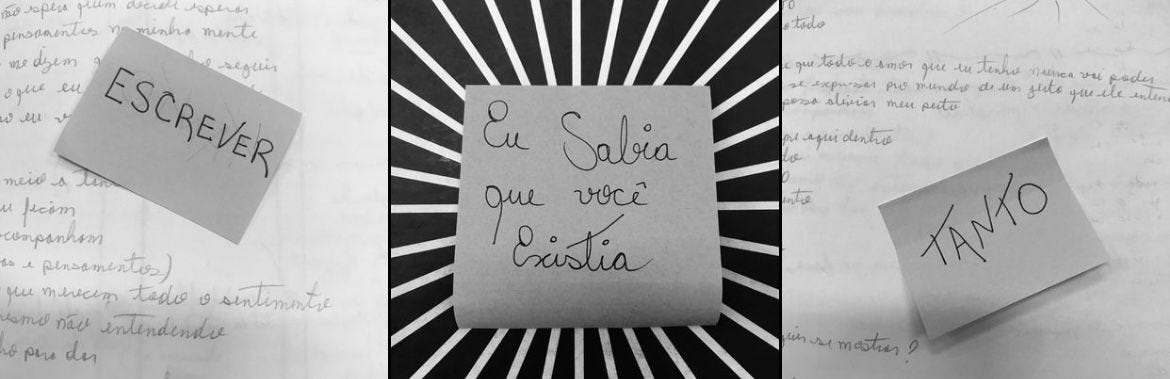 não espera quem decide esperar
pensamentos na minha mente
me dizem seguir
o que eu
ESCREVER
meio a
ficam
acompanham
e pensamentos)
que merecem todo o sentimento
mesmo não entendendo
para dar
Eu Sabia
que você
Existia
todo
que todo o amor que eu tenho nunca vai poder
se expressar pro mundo de um jeito que ele
possa aliviar meu peito
aqui dentro
TANTO
se mostrar?